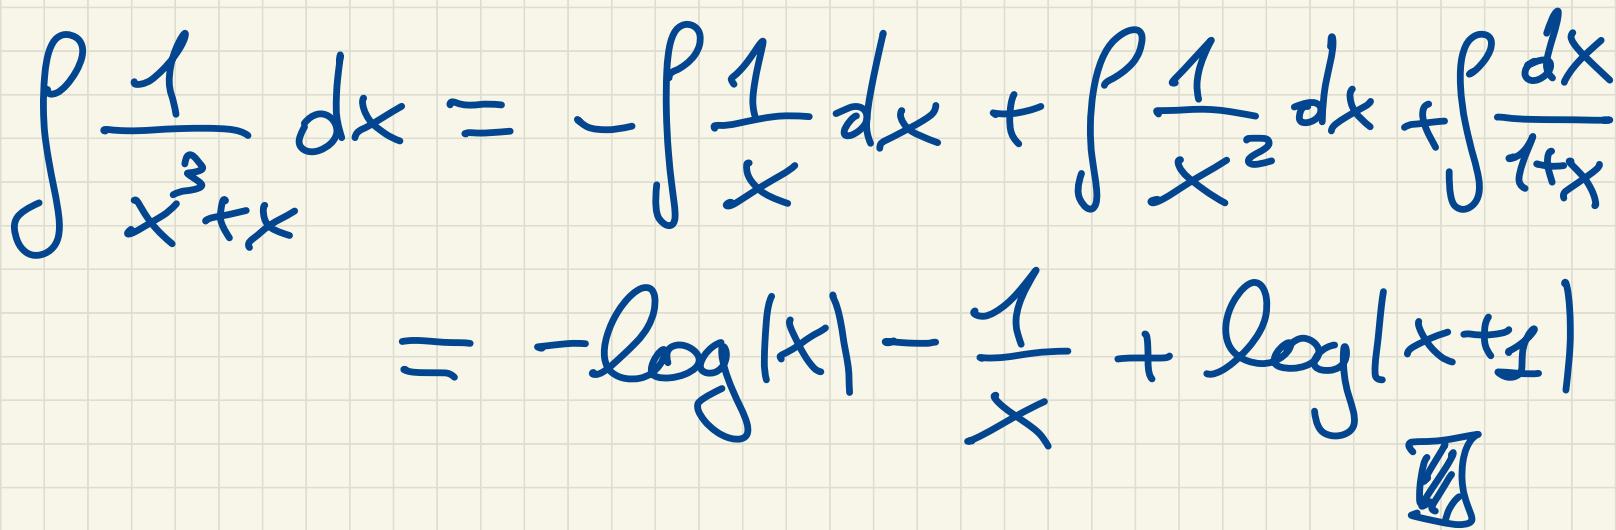 ∫ 1/(x³+x) dx = - ∫ 1/x dx + ∫ 1/x² dx + ∫ dx/(1+x)
= - log|x| - 1/x + log|x+1|